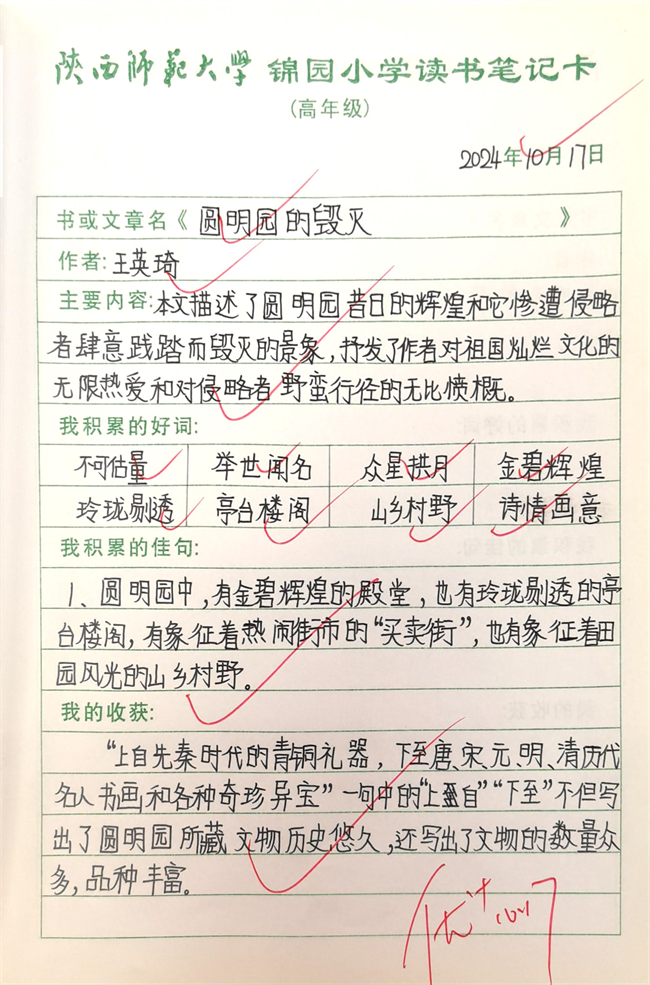 陕西师范大学 锦园小学读书笔记卡
(高年级)
2024年10月17日
书或文章名《 圆明园的毁灭 》
作者:王英琦
主要内容:本文描述了圆明园昔日的辉煌和它惨遭侵略
者肆意践踏而毁灭的景象，抒发了作者对祖国灿烂文化的
无限热爱和对侵略者野蛮行径的无比愤概。
我积累的好词:
不可估量 举世闻名 众星拱月 金碧辉煌
玲珑剔透 亭台楼阁 山乡村野 诗情画意
我积累的佳句:
1、圆明园中，有金碧辉煌的殿堂，也有玲珑剔透的亭
台楼阁，有象征着热闹街市的“买卖街”，也有象征着田
园风光的山乡村野。
我的收获:
“上自先秦时代的青铜礼器，下至唐、宋、元、明、清历代
名人书画和各种奇珍异宝”一句中的“上自”“下至”不但写
出了圆明园所藏文物历史悠久，还写出了文物的数量众
多，品种丰富。
优+ 10.17